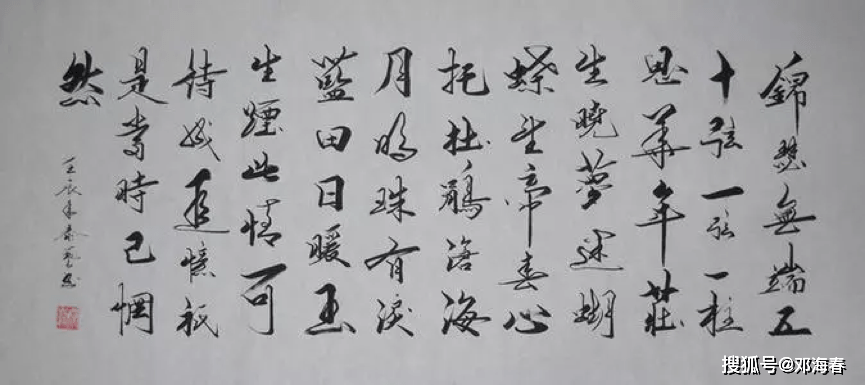 錦瑟無端五
十弦一弦一柱
思華年莊
生曉夢迷蝴
蝶望帝春心
托杜鵑滄海
月明珠有淚
藍田日暖玉
生煙此情可
待成追憶祇
是當時已惘
然
壬辰年春
搜狐号@邓海春